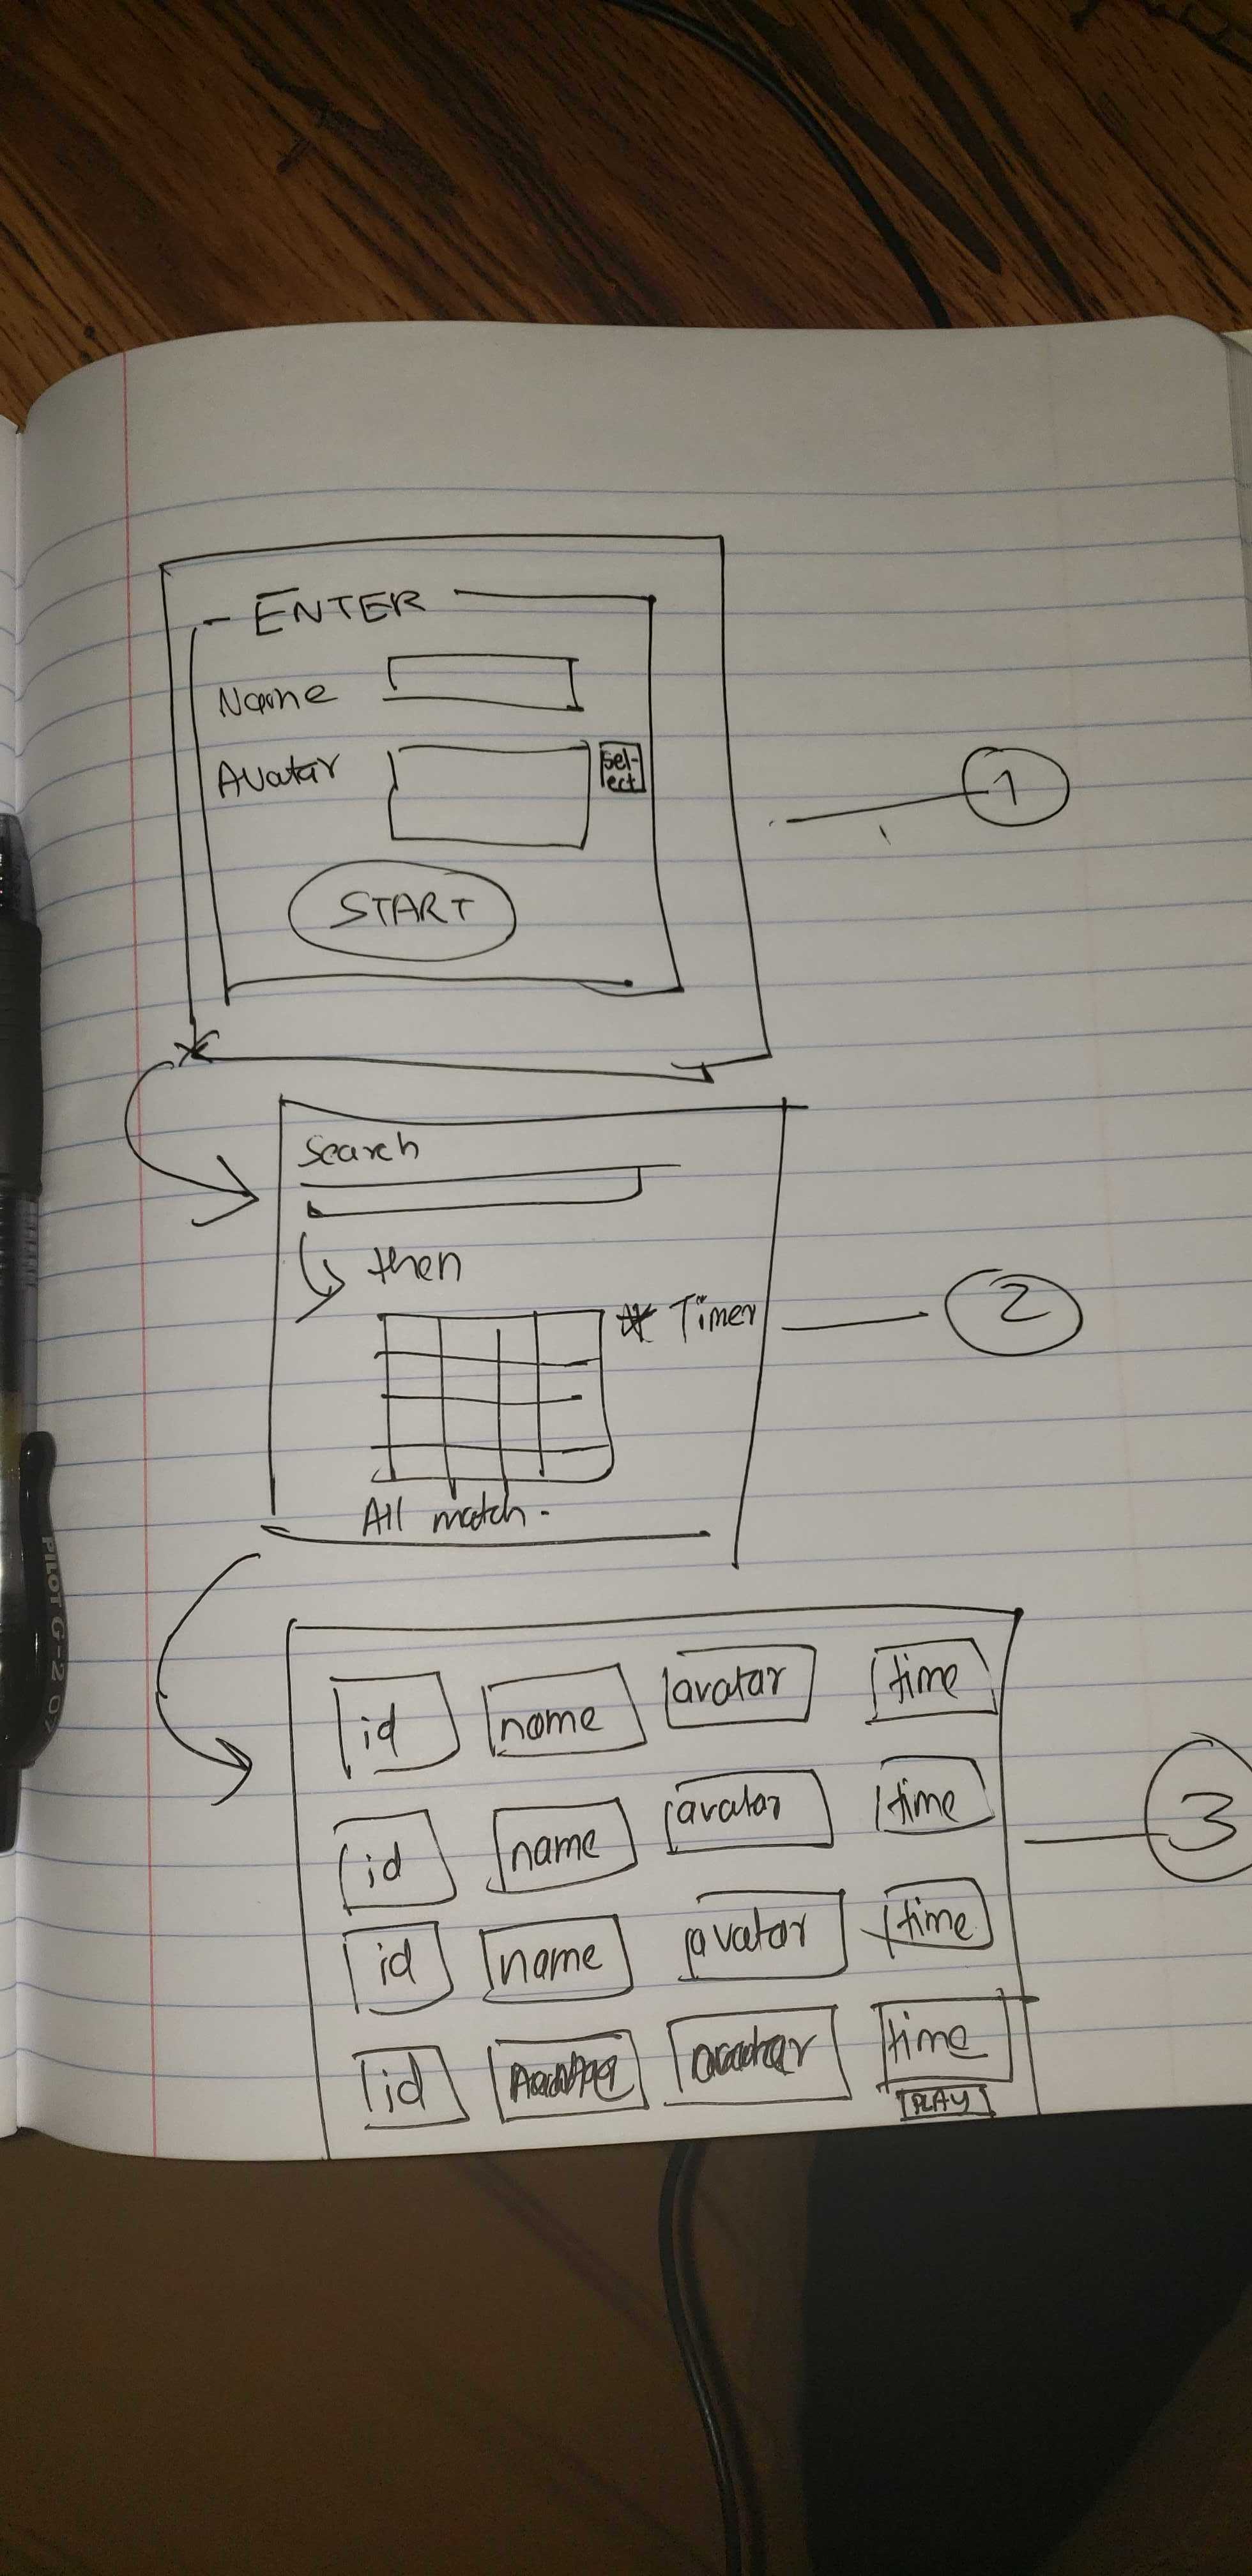 ENTER
Name
Avatar
sel-
ect
START
1
Search
then
Timer
2
All match.
id name avatar time
id name avatar time
3
id name avatar time
id time
PLAY
PILOT G-2 07